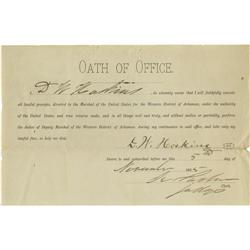 OATH OF OFFICE.
I, D. W. Hoskins, do solemnly swear that I will faithfully execute
all lawful precepts, directed to the Marshal of the United States for the Western District of Arkansas, under the authority
of the United States and true returns make, and in all things well and truly, and without malice or partiality, perform
the duties of Deputy Marshal of the Western District of Arkansas, during my continuance in said office, and take only my
lawful fees, so help me God.
D. W. Hoskins
Sworn to and subscribed before me this 5
November 188
Judge